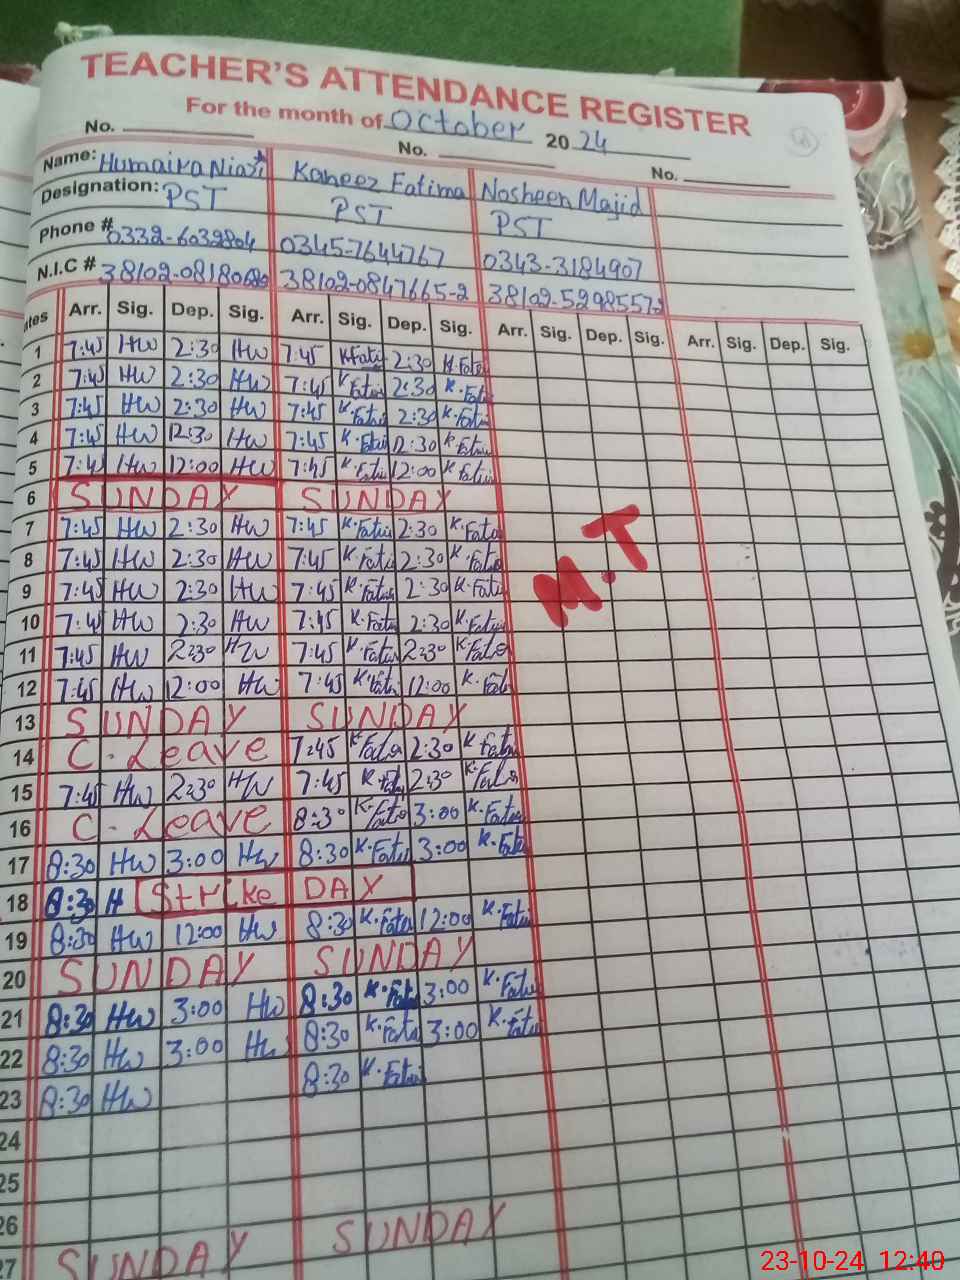 TEACHER'S ATTENDANCE REGISTER
For the month of October 2024
No. No. No.
Name: Humaira Niazi Kaneez Fatima Nosheen Majid
Designation: PST PST PST
Phone # 0332-6032804 0345-7644767 0343-3184907
N.I.C # 38102-08180 38102-0847665-2 38102-5298557-2
Arr. Sig. Dep. Sig. Arr. Sig. Dep. Sig. Arr. Sig. Dep. Sig. Arr. Sig. Dep. Sig.
1 7:45 HW 2:30 HW 7:45 K.Fatima 2:30 K.Fatima
2 7:45 HW 2:30 HW 7:45 K.Fatima 2:30 K.Fatima
3 7:45 HW 2:30 HW 7:45 K.Fatima 2:30 K.Fatima
4 7:45 HW 12:30 HW 7:45 K.Fatima 12:30 K.Fatima
5 7:45 HW 12:00 HW 7:45 K.Fatima 12:00 K.Fatima
6 SUNDAY SUNDAY
7 7:45 HW 2:30 HW 7:45 K.Fatima 2:30 K.Fatima
8 7:45 HW 2:30 HW 7:45 K.Fatima 2:30 K.Fatima
9 7:45 HW 2:30 HW 7:45 K.Fatima 2:30 K.Fatima
M.T
10 7:45 HW 2:30 HW 7:45 K.Fatima 2:30 K.Fatima
11 7:45 HW 2:30 HW 7:45 K.Fatima 2:30 K.Fatima
12 7:45 HW 12:00 HW 7:45 K.Fatima 12:00 K.Fatima
13 SUNDAY SUNDAY
14 C-Leave 7:45 K.Fatima 2:30 K.Fatima
15 7:45 HW 2:30 HW 7:45 K.Fatima 2:30 K.Fatima
16 C-Leave 8:30 K.Fatima 3:00 K.Fatima
17 8:30 HW 3:00 HW 8:30 K.Fatima 3:00 K.Fatima
18 8:30 H Strike DAY
19 8:30 HW 12:00 HW 8:30 K.Fatima 12:00 K.Fatima
20 SUNDAY SUNDAY
21 8:30 HW 3:00 HW 8:30 K.Fatima 3:00 K.Fatima
22 8:30 HW 3:00 HW 8:30 K.Fatima 3:00 K.Fatima
23 8:30 HW 8:30 K.Fatima
24
25
26
27 SUNDAY SUNDAY
23-10-24 12:40